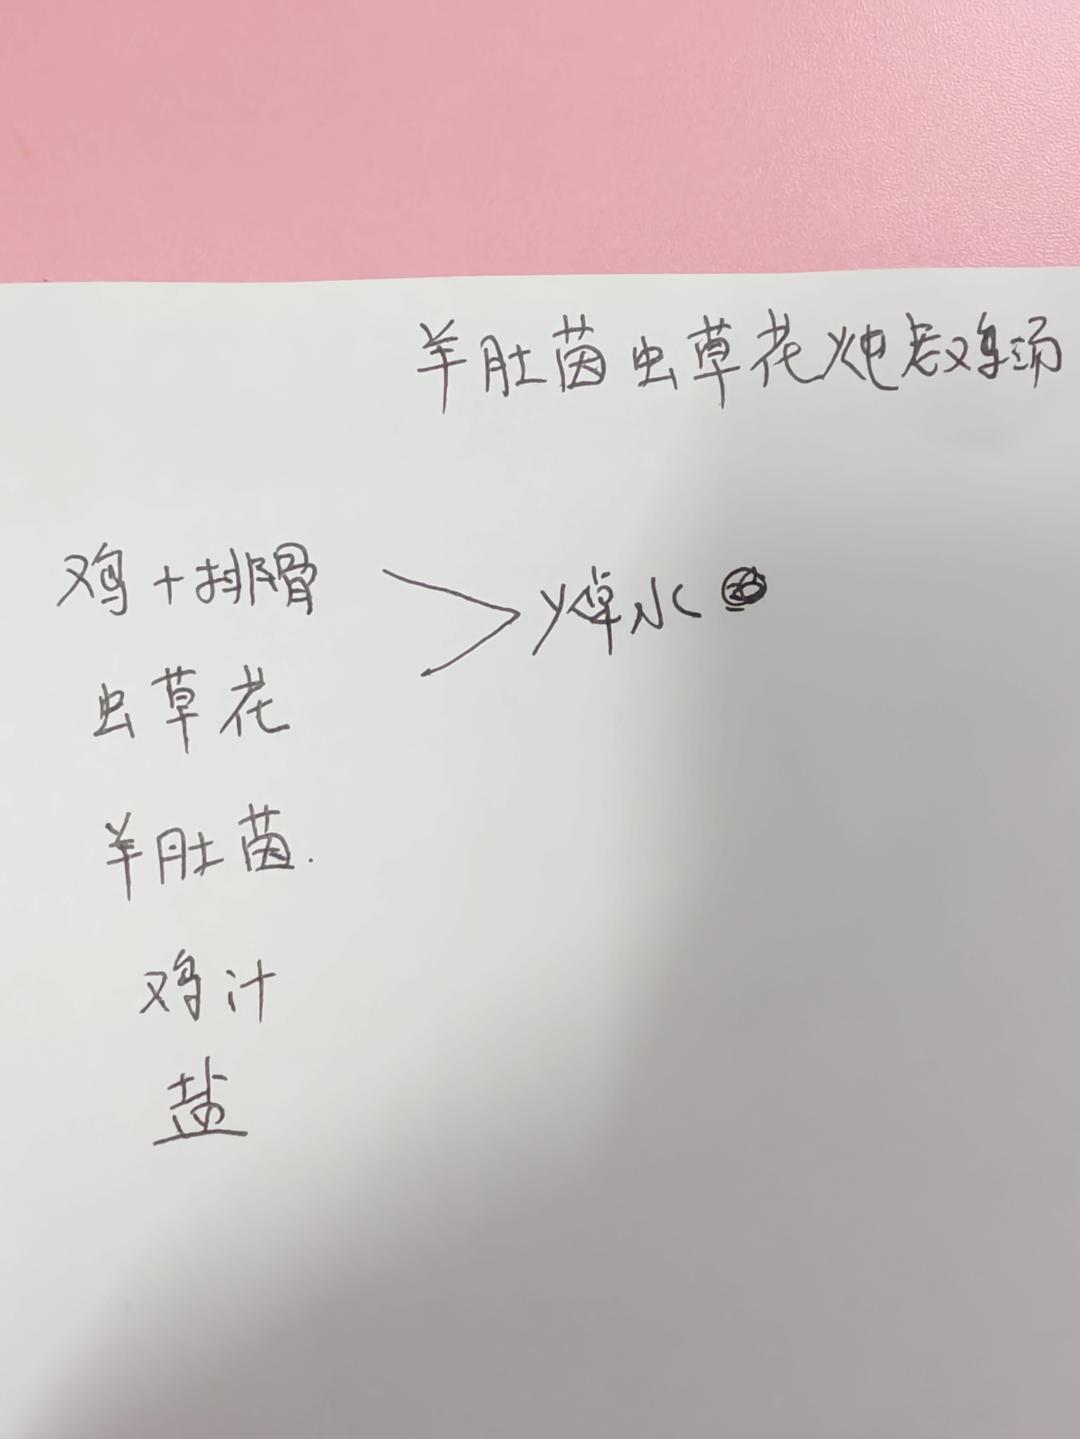 羊肚菌虫草花炖老鸡汤
鸡+排骨 > 焯水
虫草花
羊肚菌.
鸡汁
盐